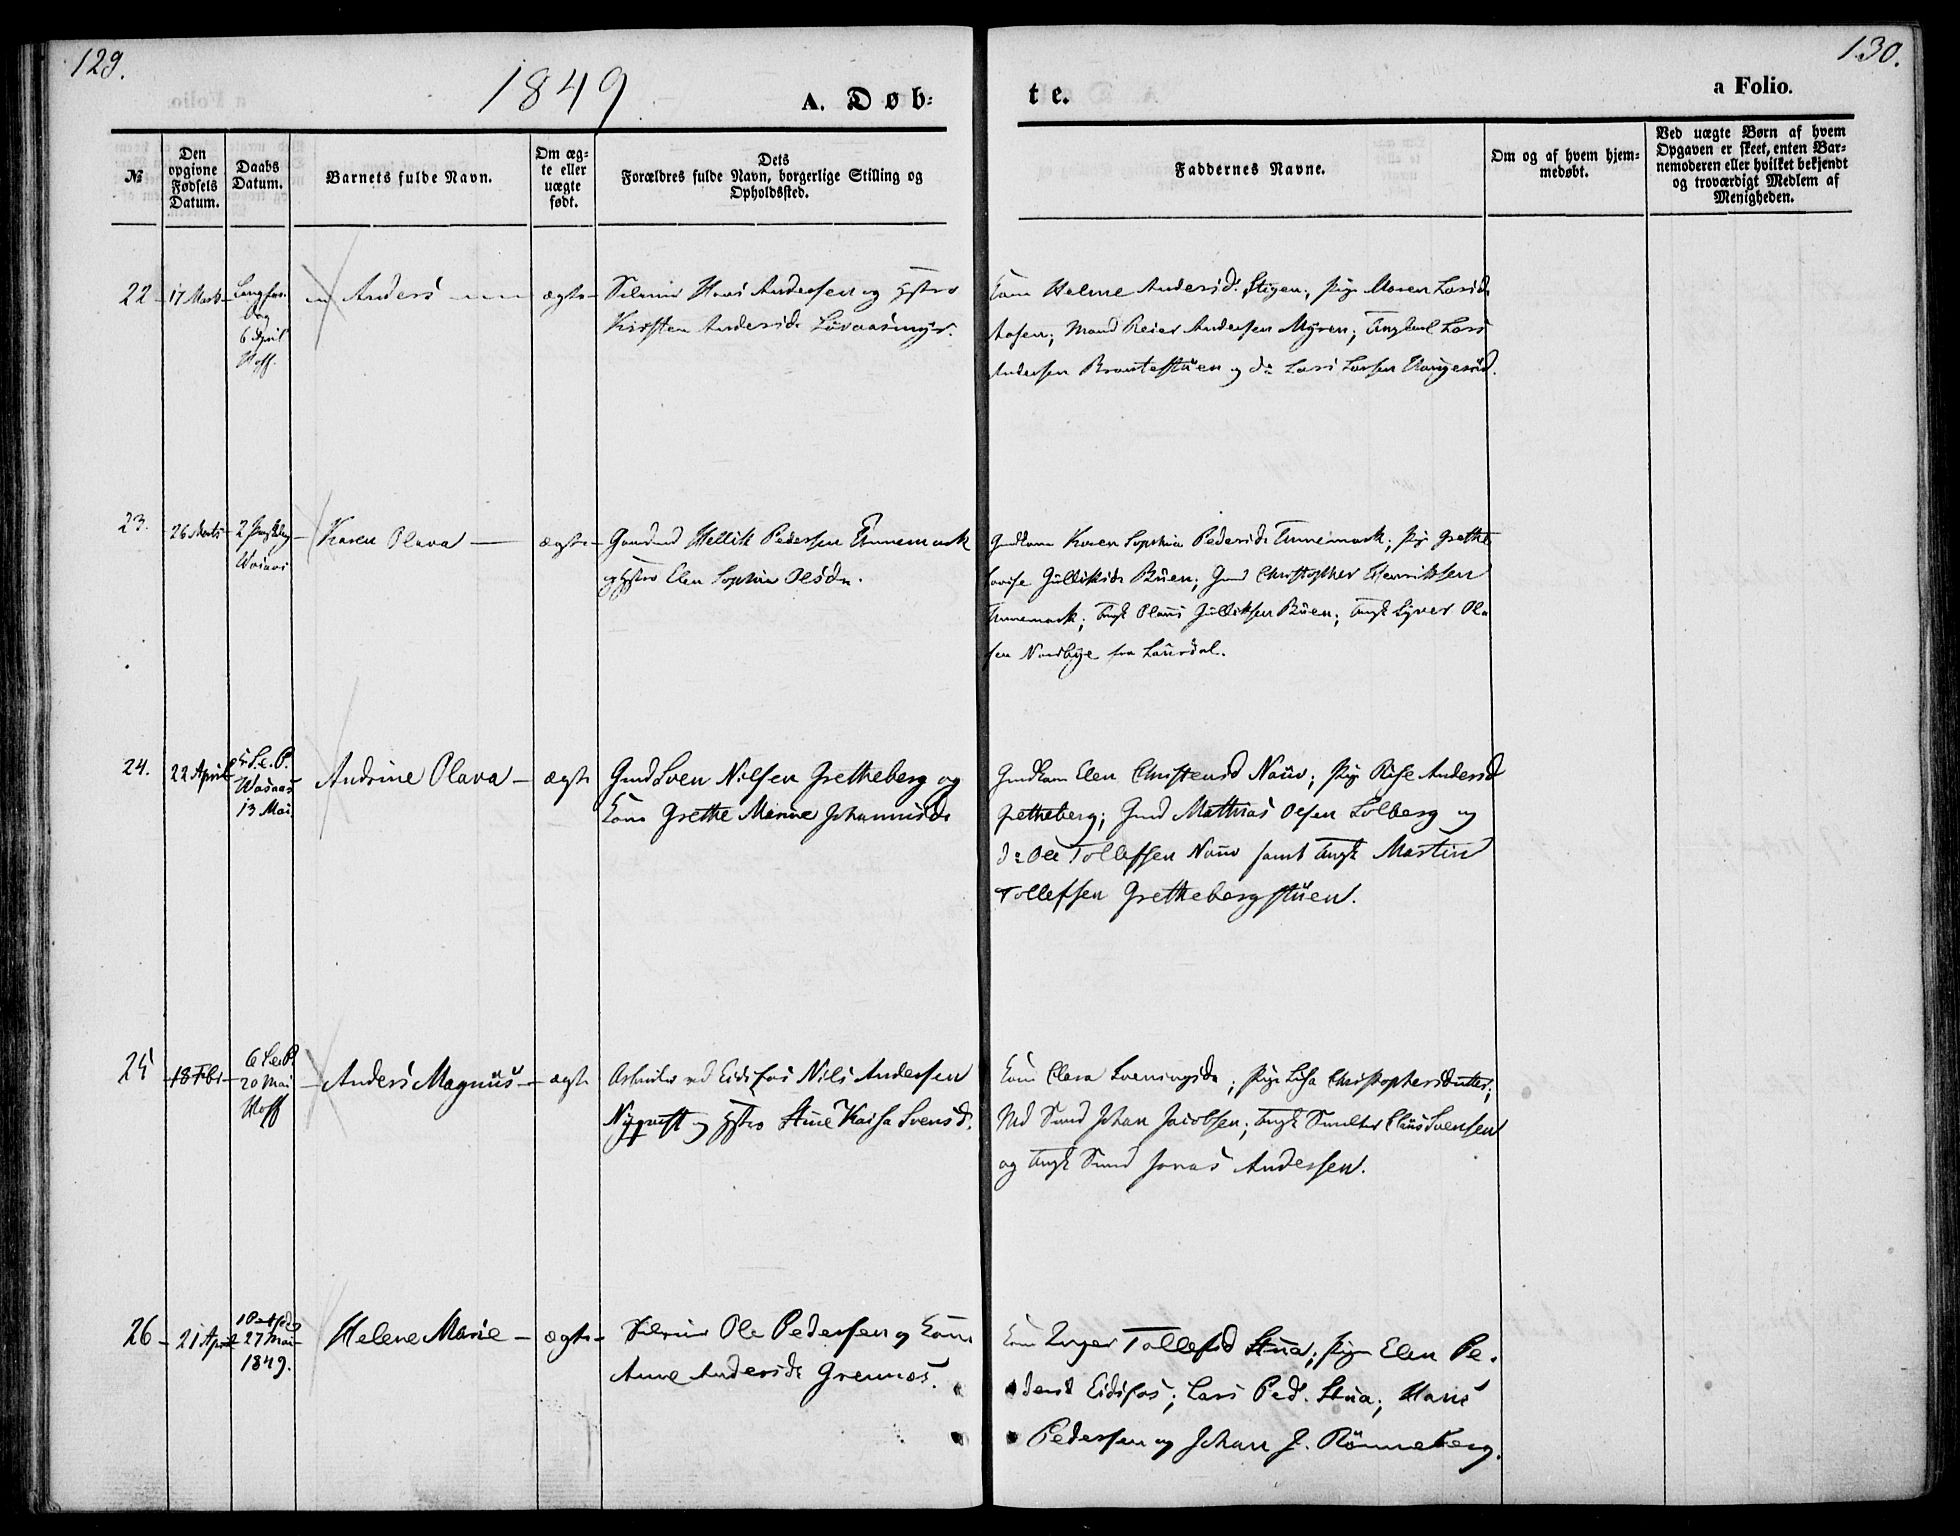 129.
130.
1849
A. Døb-
te.
a Folio.
№
Den opgivne Fødsels Datum.
Daabs Datum.
Barnets fulde Navn.
Om æg-
te eller
uægte
født.
Dets
Forældres fulde Navn, borgerlige Stilling og
Opholdssted.
Faddernes Navne.
Om og af hvem hjem-
medøbt.
Ved uægte Børn af hvem
Opgaven er skeet, enten Bar-
nemoderen eller hvilket bekjendt
og troværdigt Medlem af
Menigheden.
22
17 Marts
Langfre-
dag
6 April
Hoff.
Anders
ægte
Hans Andersen og Hstro
Kirsten Andersd.
Kone Helene Andersd. Stigen; Pige Maren Larsd.
Aasen; Mand Reier Andersen Myren; Ungkarl Lars
Andersen Brantestuen og do Lars Larsen
23.
26 Marts
Karen Olava
ægte
Gmd Hellik Pedersen Unnemark
og Hstro Elen Sophia Olsdr.
Gmdkone Karen Sophia Pedersdr Unnemark; Pige Grethe
Lovise Gulliksdr Büen; Gmd Christopher Henriksen
Unnemark; Ungk Olaus Gulliksen Büen; Ungk Syver Ol-
sen Nordbye fra Laurdal.
24.
22 April
5 S. e. P.
Vasaas
13 Mai.
Andrine Olava
ægte
Gmd Sven Nilsen Gretheberg og
Kone Grethe Marine Johannisdr
Gmdkone Elen Christensd Nauv; Pige Andersd
Gretheberg; Gmd Mathias Olsen Solberg og
do Ole Tollefsen Nauv samt Ungk Martin
Tollefsen Grethebergstuen.
25
18 Febr
6 S. e. P.
20 Mai
Hoff
Anders Magnus
ægte
Arbeider ved Eidsfos Nils Andersen
Nyqvist og Hstro Stine Kaisa Svensd.
Kone Clara Svenungsdr; Pige Lisa Christophersdatter;
Md Smed Johan Jacobsen; Ungk Smelter Claus Svensen
og Ungk Smed Jonas Andersen.
26
21 April
27 Mai
1849.
Helene Marie
ægte
Ole Pedersen og Kone
Anne Andersdr Grennes.
Kone Inger Tollefsd Stua; Pige Elen Pe-
dersd Eidsfos; Lars Ped. Stua; Hans
Pedersen og Johan J. Rönneberg.